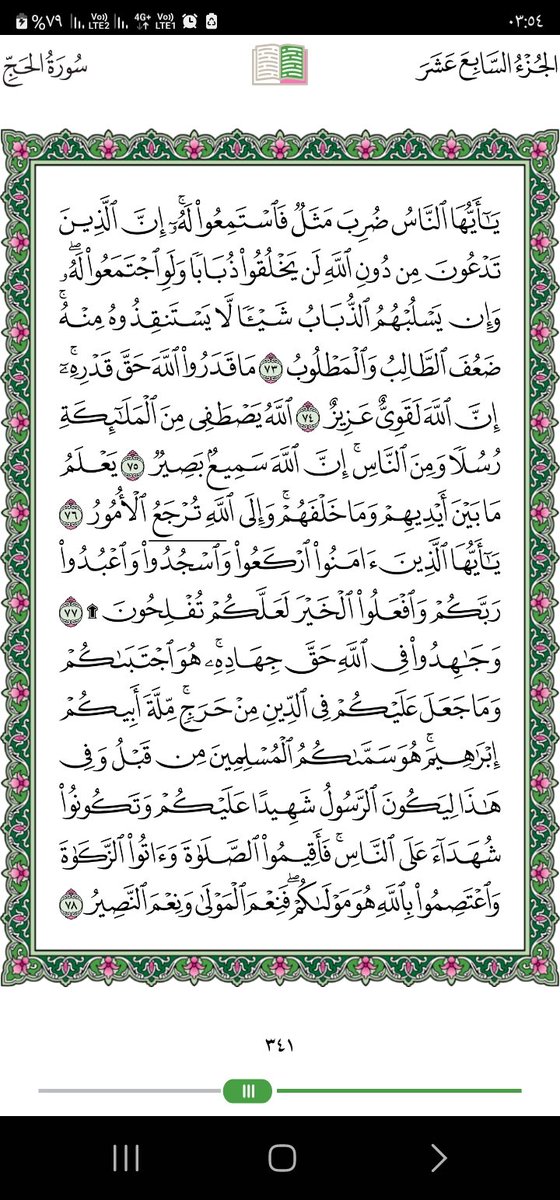 %٧٩ Vo)) LTE2 4G+ Vo)) LTE1 ٠٣:٥٤
الجُزْءُ السَّابِعَ عَشَرَ
سُورَةُ الحَجِّ
يَٰٓأَيُّهَا ٱلنَّاسُ ضُرِبَ مَثَلٞ فَٱسۡتَمِعُواْ لَهُۥٓۚ إِنَّ ٱلَّذِينَ
تَدۡعُونَ مِن دُونِ ٱللَّهِ لَن يَخۡلُقُواْ ذُبَابٗا وَلَوِ ٱجۡتَمَعُواْ لَهُۥۖ
وَإِن يَسۡلُبۡهُمُ ٱلذُّبَابُ شَيۡـٔٗا لَّا يَسۡتَنقِذُوهُ مِنۡهُۚ
ضَعُفَ ٱلطَّالِبُ وَٱلۡمَطۡلُوبُ ٧٣ مَا قَدَرُواْ ٱللَّهَ حَقَّ قَدۡرِهِۦٓۚ
إِنَّ ٱللَّهَ لَقَوِيٌّ عَزِيزٌ ٧٤ ٱللَّهُ يَصۡطَفِي مِنَ ٱلۡمَلَٰٓئِكَةِ
رُسُلٗا وَمِنَ ٱلنَّاسِۚ إِنَّ ٱللَّهَ سَمِيعُۢ بَصِيرٞ ٧٥ يَعۡلَمُ
مَا بَيۡنَ أَيۡدِيهِمۡ وَمَا خَلۡفَهُمۡۚ وَإِلَى ٱللَّهِ تُرۡجَعُ ٱلۡأُمُورُ ٧٦
يَٰٓأَيُّهَا ٱلَّذِينَ ءَامَنُواْ ٱرۡكَعُواْ وَٱسۡجُدُواْۤ وَٱعۡبُدُواْ
رَبَّكُمۡ وَٱفۡعَلُواْ ٱلۡخَيۡرَ لَعَلَّكُمۡ تُفۡلِحُونَ ۩ ٧٧
وَجَٰهِدُواْ فِي ٱللَّهِ حَقَّ جِهَادِهِۦۚ هُوَ ٱجۡتَبَىٰكُمۡ
وَمَا جَعَلَ عَلَيۡكُمۡ فِي ٱلدِّينِ مِنۡ حَرَجٖۚ مِّلَّةَ أَبِيكُمۡ
إِبۡرَٰهِيمَۚ هُوَ سَمَّىٰكُمُ ٱلۡمُسۡلِمِينَ مِن قَبۡلُ وَفِي
هَٰذَا لِيَكُونَ ٱلرَّسُولُ شَهِيدًا عَلَيۡكُمۡ وَتَكُونُواْ
شُهَدَآءَ عَلَى ٱلنَّاسِۚ فَأَقِيمُواْ ٱلصَّلَوٰةَ وَءَاتُواْ ٱلزَّكَوٰةَ
وَٱعۡتَصِمُواْ بِٱللَّهِ هُوَ مَوۡلَىٰكُمۡۖ فَنِعۡمَ ٱلۡمَوۡلَىٰ وَنِعۡمَ ٱلنَّصِيرُ ٧٨
٣٤١